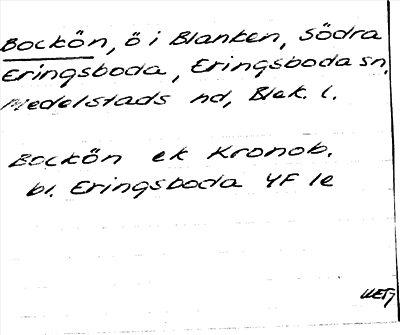 Bockön, ö i Blanken, Södra
Eringsboda, Eringsboda sn,
Medelstads hd, Blek. l.
Bockön ek Kronob.
bl. Eringsboda 4F 1e